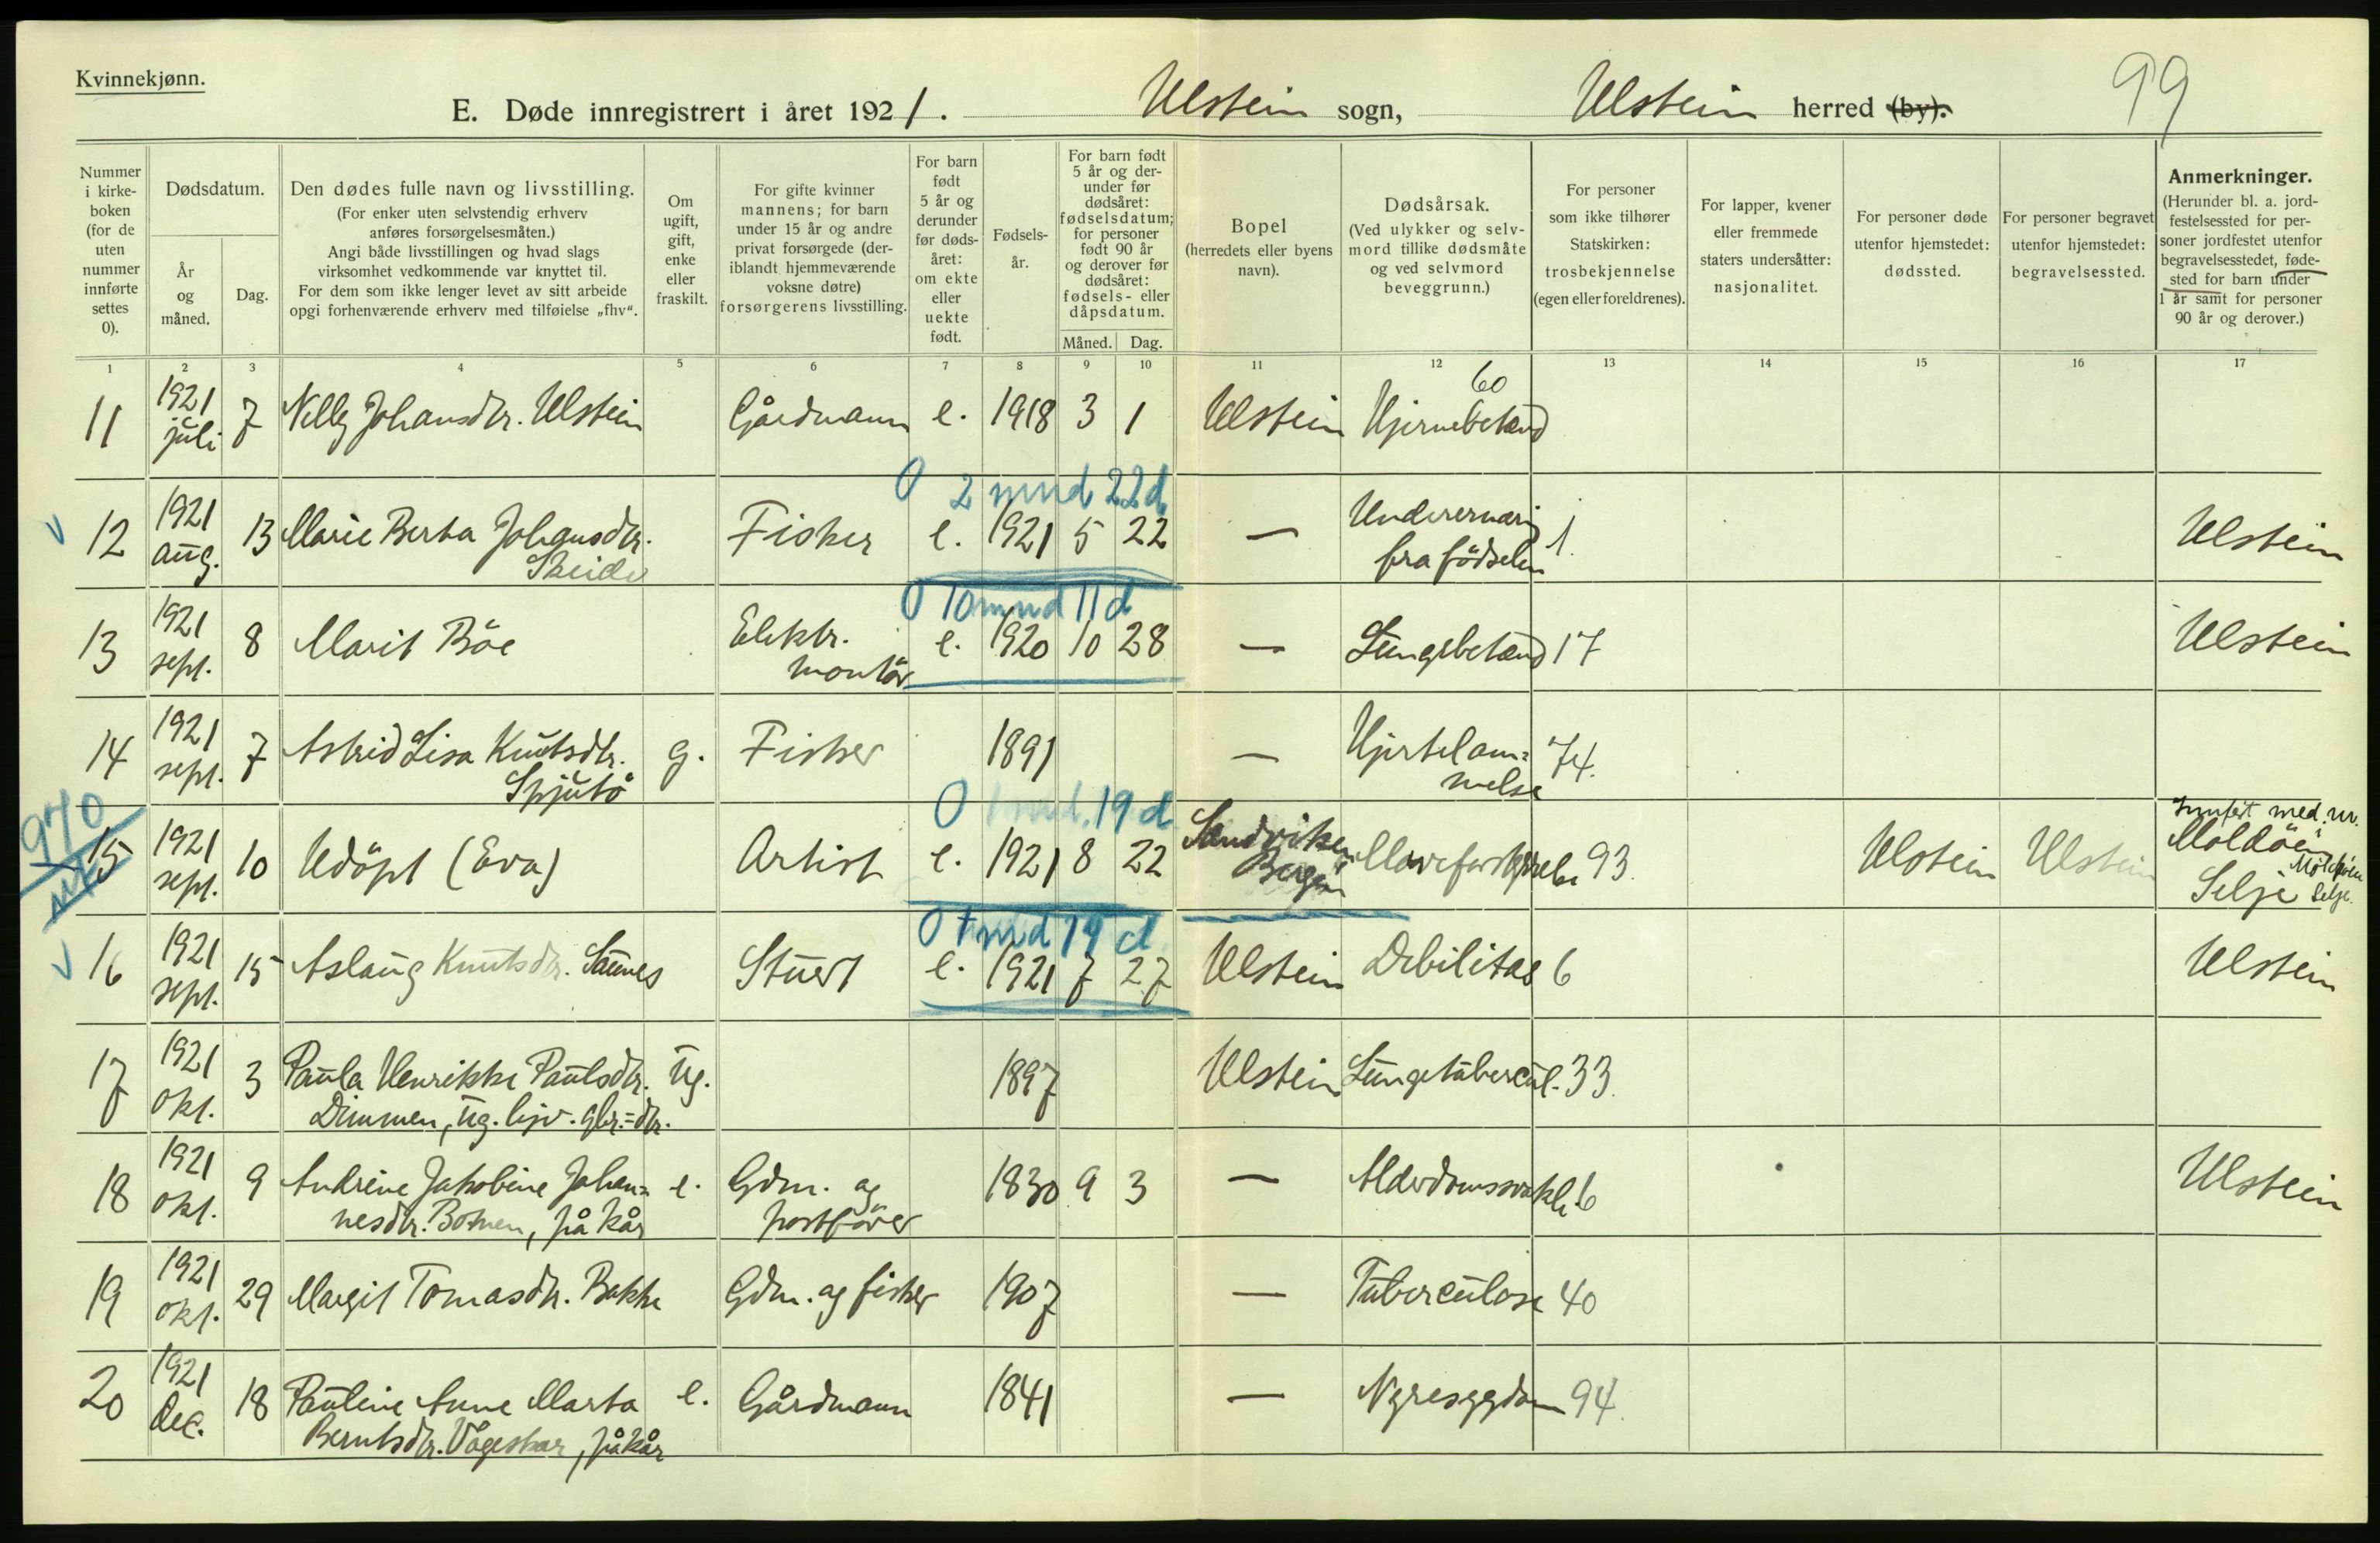 Kvinnekjønn.
99
E. Døde innregistrert i året 1921. Ulstein sogn, Ulstein herred (by).
Nummer i kirke-boken (for de uten nummer innførte settes 0).
Dødsdatum.
År og måned.
Dag.
Den dødes fulle navn og livsstilling.
(For enker uten selvstendig erhverv anføres forsørgelsesmåten.)
Angi både livsstillingen og hvad slags virksomhet vedkommende var knyttet til.
For dem som ikke lenger levet av sitt arbeide opgi forhenværende erhverv med tilføielse „fhv“.
Om ugift, gift, enke eller fraskilt.
For gifte kvinner mannens; for barn under 15 år og andre privat forsørgede (deriblandt hjemmeværende voksne døtre) forsørgerens livsstilling.
For barn født 5 år og derunder før dødsåret: om ekte eller uekte født.
Fødselsår.
For barn født 5 år og derunder før dødsåret: fødselsdatum; for personer født 90 år og derover før dødsåret: fødsels- eller dåpsdatum.
Måned. Dag.
Bopel
(herredets eller byens navn).
Dødsårsak.
(Ved ulykker og selvmord tillike dødsmåte og ved selvmord beveggrunn.)
For personer som ikke tilhører Statskirken: trosbekjennelse (egen eller foreldrenes).
For lapper, kvener eller fremmede staters undersåtter: nasjonalitet.
For personer døde utenfor hjemstedet: dødssted.
For personer begravet utenfor hjemstedet: begravelsessted.
Anmerkninger.
(Herunder bl. a. jordfestelsessted for personer jordfestet utenfor begravelsesstedet, fødested for barn under 1 år samt for personer 90 år og derover.)
1 2 3 4 5 6 7 8 9 10 11 12 13 14 15 16 17
11 1921 juli 7 Nelly Johansdtr. Ulstein Gårdmann e. 1918 3 1 Ulstein Hjernebetænd 60
0 2 mnd 22 d
12 1921 aug. 13 Marie Berta Johansdtr. Skeide Fisker e. 1921 5 22 — Underernæring fra födselen 1. Ulstein
0 10 mnd 11 d
13 1921 sept. 8 Marit Böe Elektr. montör e. 1920 10 28 — Lungebetænd 17 Ulstein
14 1921 sept. 7 Astrid Lisa Knutsdtr. Spjutö g. Fisker 1891 — Hjertelam=melse 74.
0 1 md. 19 d
970
15 1921 sept. 10 Udöpt (Eva) Artist e. 1921 8 22 Sandviken Bergen 93. Ulstein Ulstein med. nr. Moldöen Selje Moldöen Selje.
0 1 md 19 d
16 1921 sept. 15 Aslaug Knutsdtr. Saunes Stuert e. 1921 7 27 Ulstein Debilitas 6 Ulstein
17 1921 okt. 3 Paula Henrikke Paulsdtr. Dimmen, ug. gbr.=dtr. ug. 1897 Ulstein Lungetubercul. 33.
18 1921 okt. 9 Andrine Jakobine Johan=nesdtr. Botnen, på kår e. Gdm. og postförer 1830 9 3 — Alderdomssvakh. 6 Ulstein
19 1921 okt. 29 Margit Tomasdtr. Bakke Gdm. og fisker 1907 — Tuberculose 40
20 1921 dec. 18 Pauline Anne Marta Berntsdtr. Vågeskar, på kår e. Gårdmann 1841 — Nyresygdom 94.